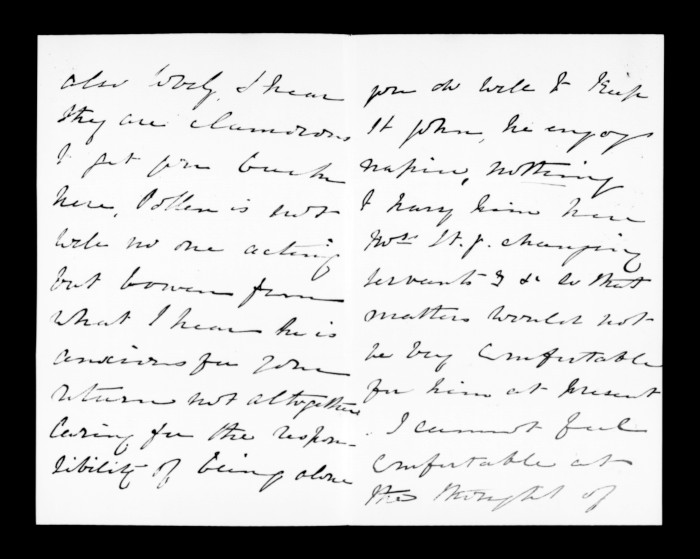 also lovely, I hear
they are clamorous
to get you back
here, Pollen is not
well no one acting
but Bowen from
what I hear he is
anxious for your
return not altogether
caring for the respon-
sibility of being alone
you do well to keep
St John, he enjoys
Napier, nothing
to hurry him here
Mrs St. J. changing
servants & & so that
matters would not
be very comfortable
for him at present
. I cannot feel
comfortable at
the thought of